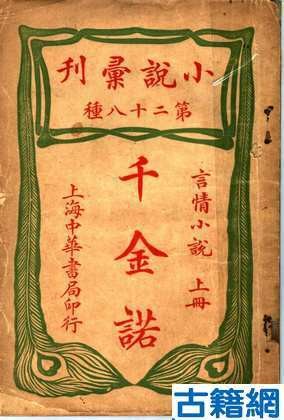 小說彙刊
第二十八種
言情小說 上冊
千金諾
上海中華書局印行
古籍網